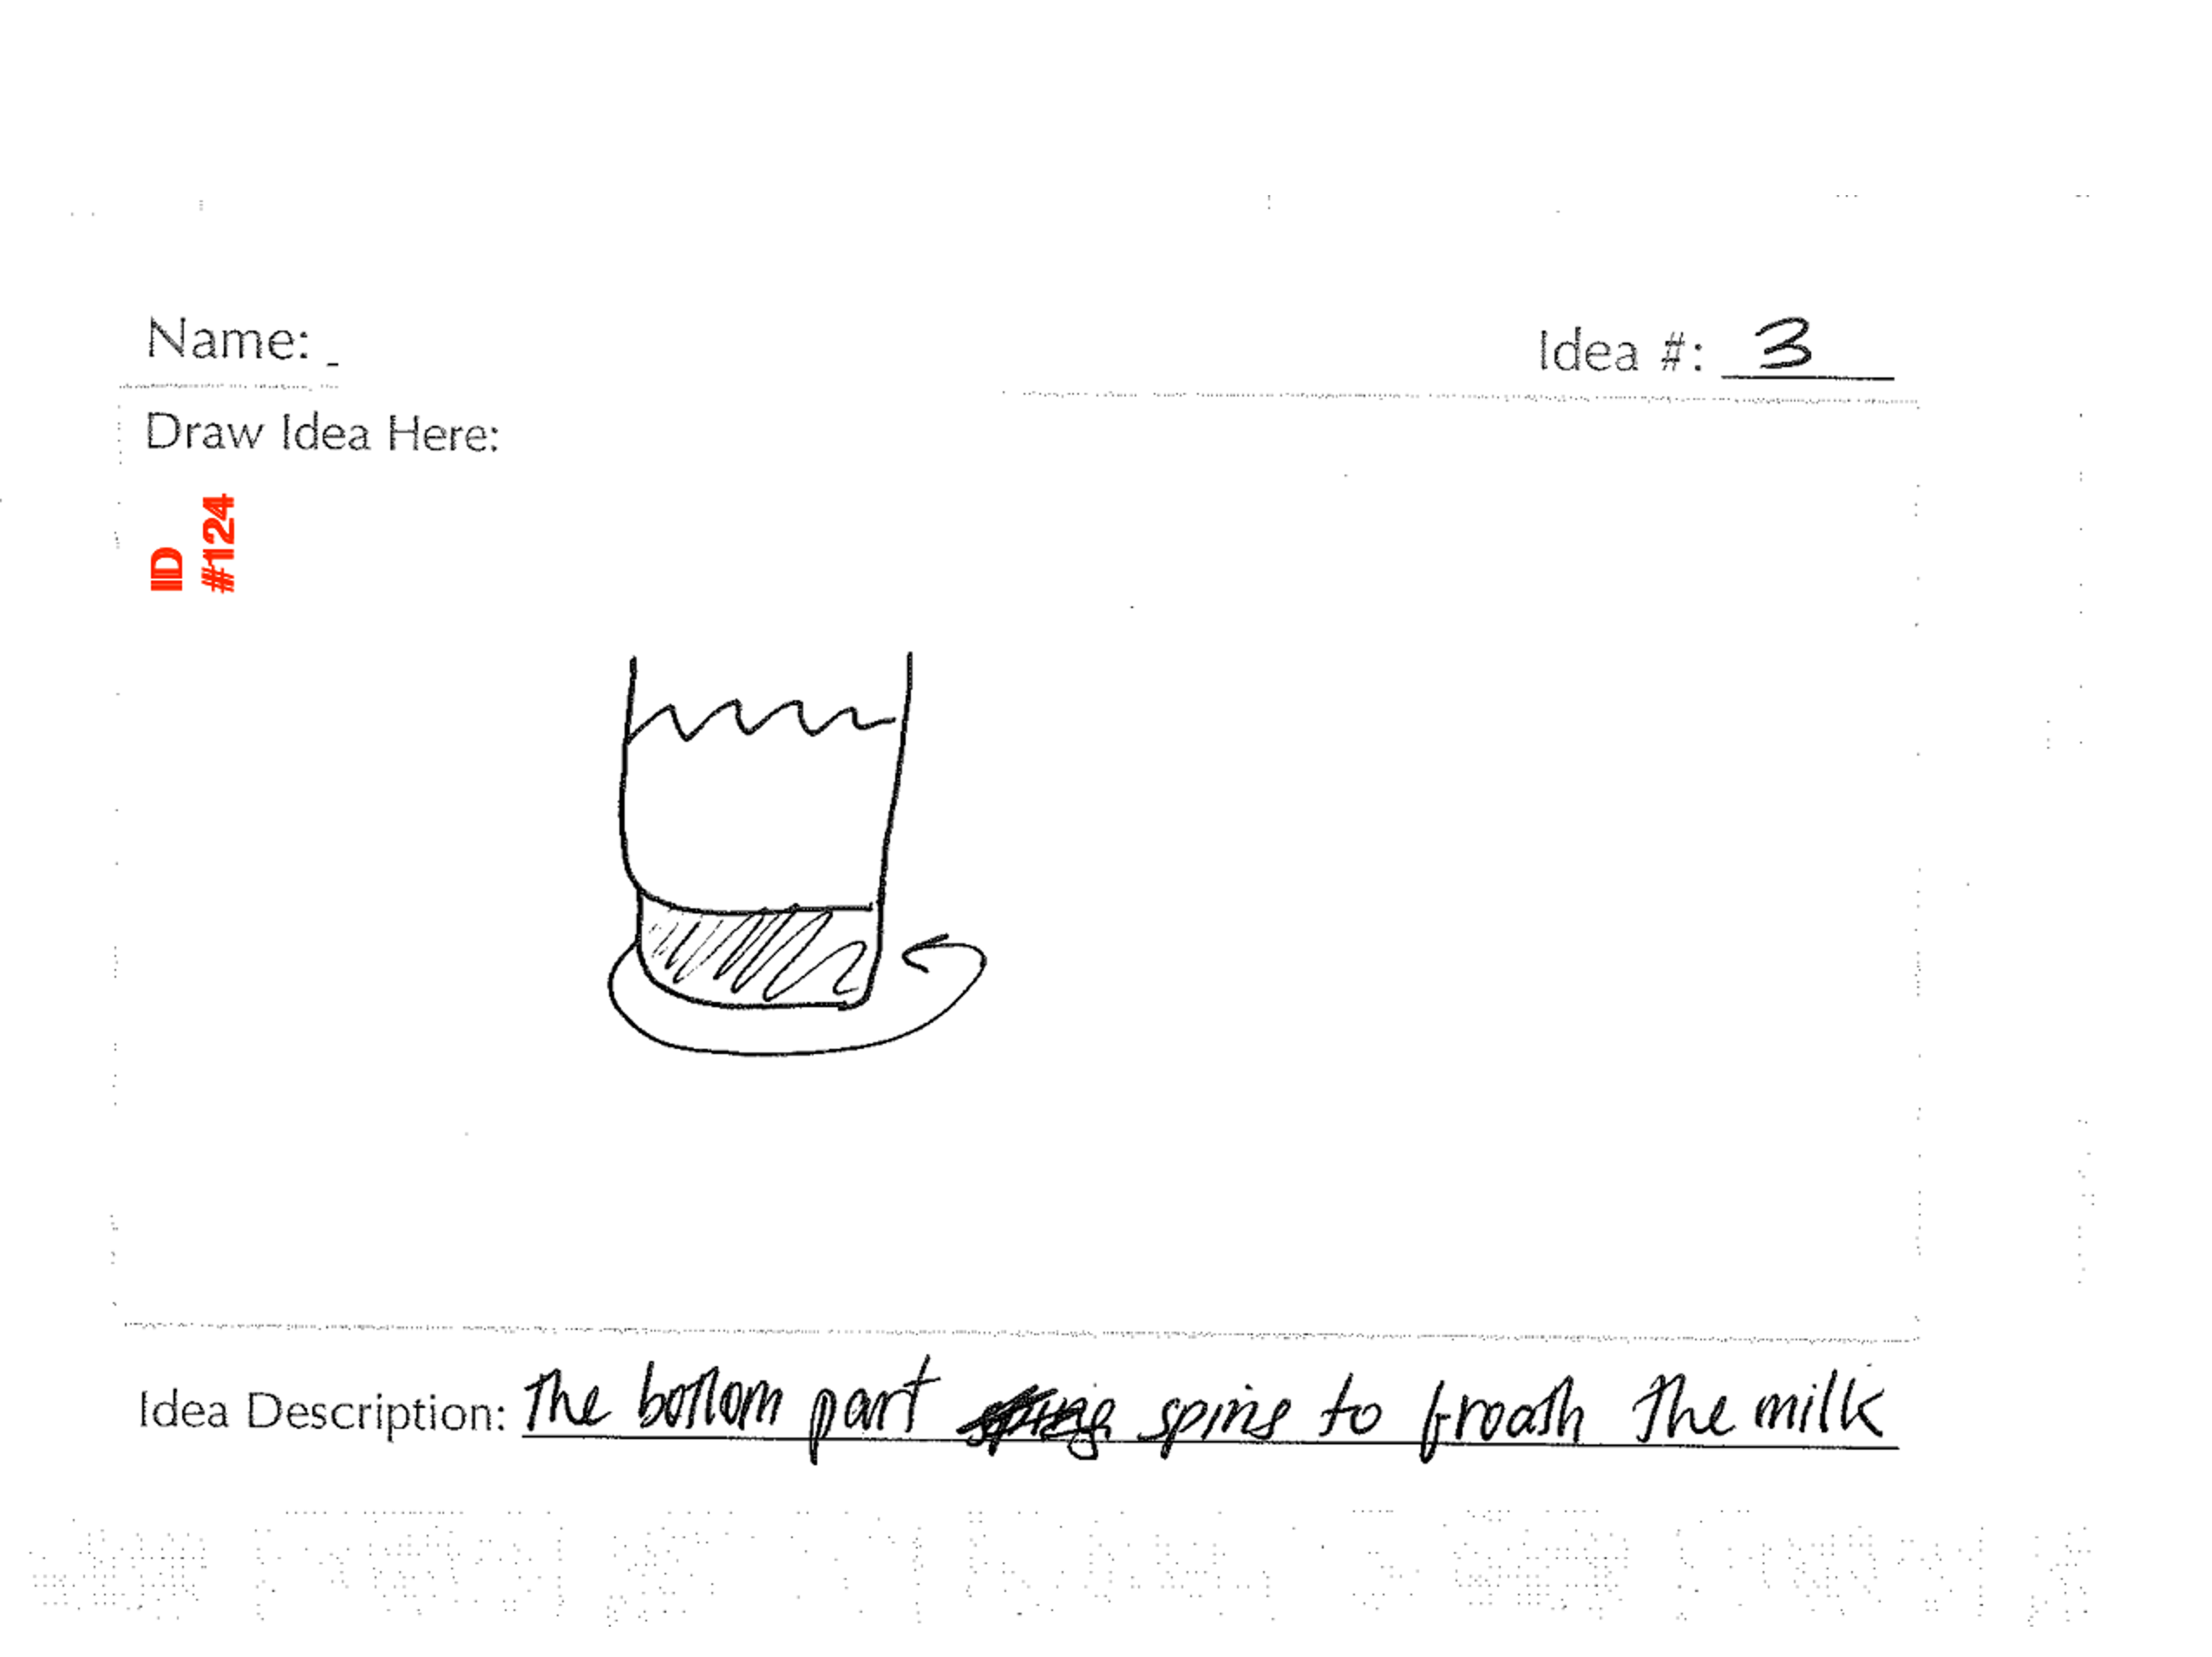 Name:
Idea #: 3
Draw Idea Here:
ID
#124
Idea Description: The bottom part spins to froath the milk